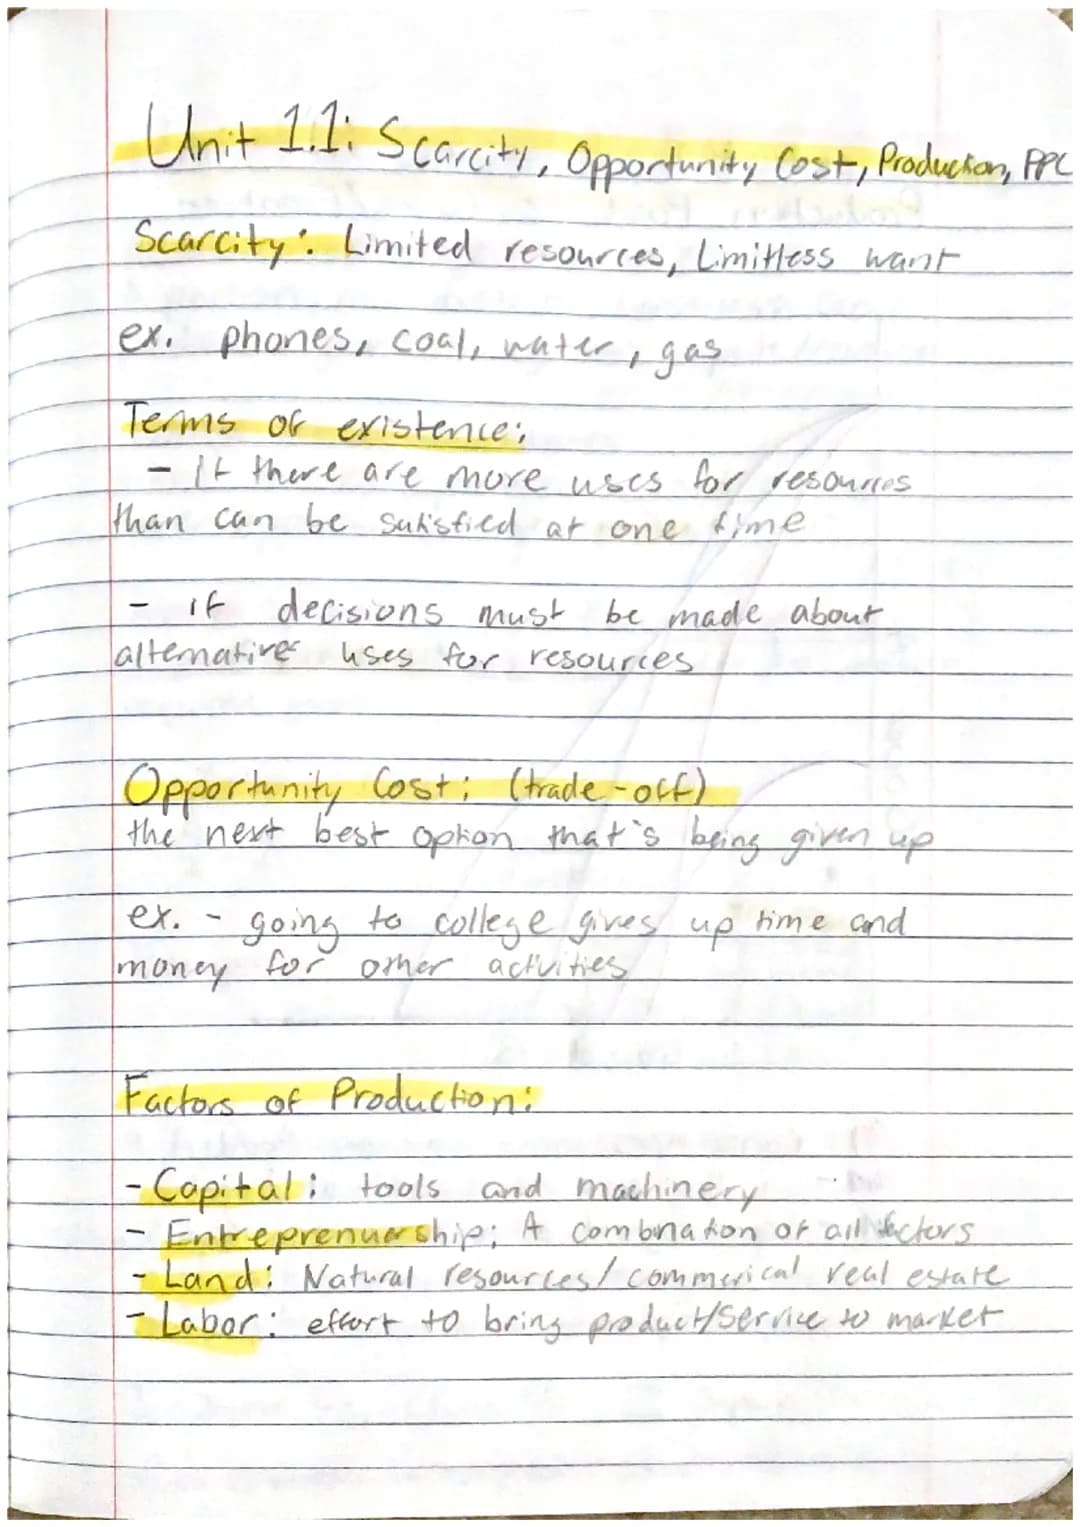 Unit 1.1: Scarcity, Opportunity Cost, Production, PPC
Scarcity: Limited resources, Limitless want
ex. phones, coal, water, gas
Terms of existence:
- If there are more uses for resources
than can be satisfied at one time
- if decisions must be made about
alternative uses for resources
Opportunity Cost: (trade-off)
the next best option that's being given up
ex. - going to college gives up time and
money for other activities
Factors of Production:
- Capital: tools and machinery
- Entreprenuership: A combination of all factors
- Land: Natural resources/commerical real estate
- Labor: effort to bring product/service to market